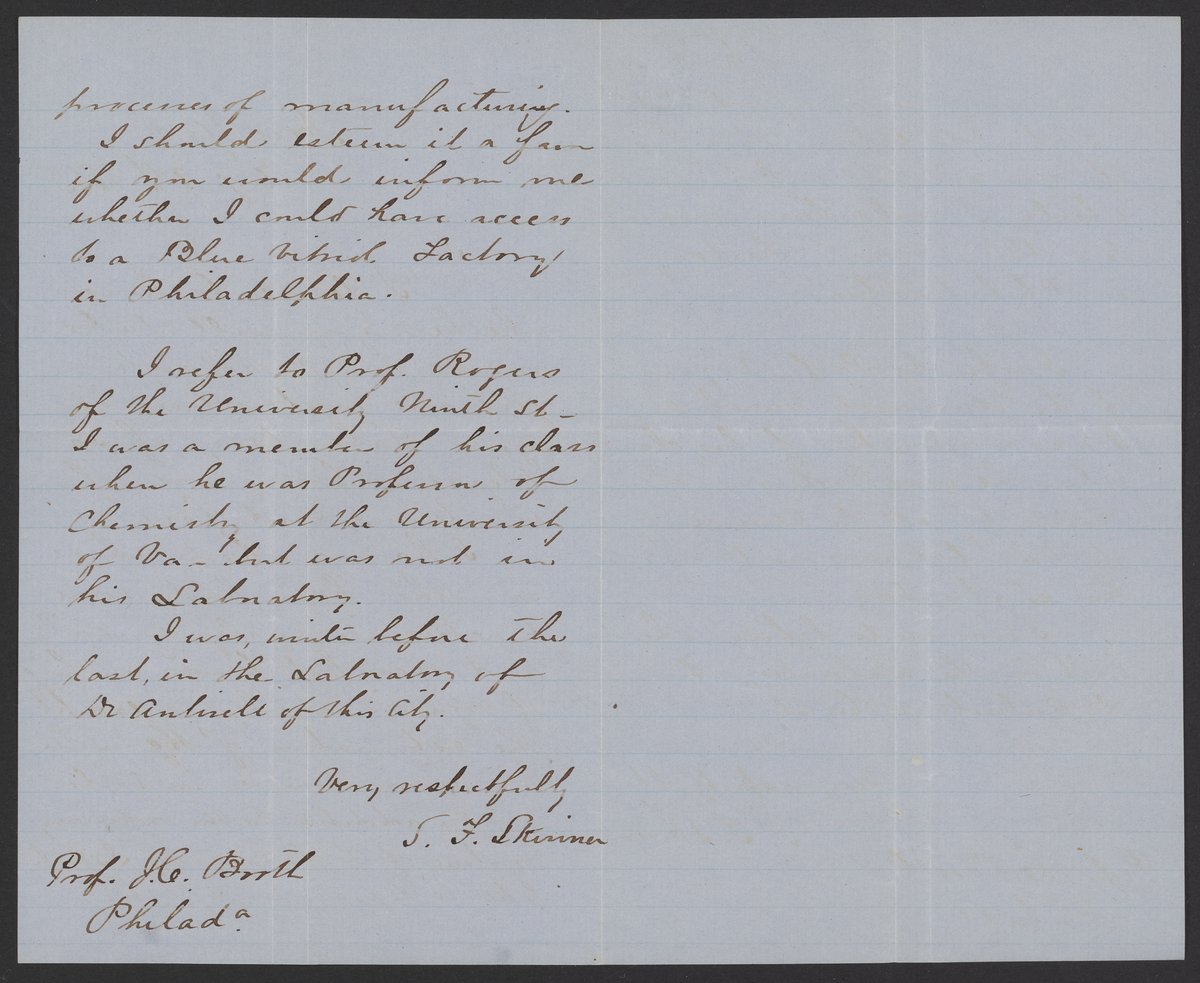 processes of manufacturing.
I should esteem it a favor
if you would inform me
whether I could have access
to a Blue Vitriol Factory
in Philadelphia.
I refer to Prof. Rogers
of the University Ninth St –
I was a member of his class
when he was Professor of
Chemistry at the University
of Va – but was not in
his Laboratory.
I was, winter before the
last, in the Laboratory of
Dr Antisell of this City.
Very respectfully
F. Skinner
Prof. J.C. Booth
Philada.